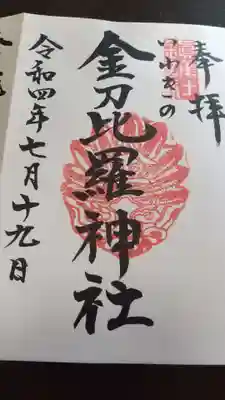 奉拝
いわきの
金刀比羅神社
令和四年七月十九日